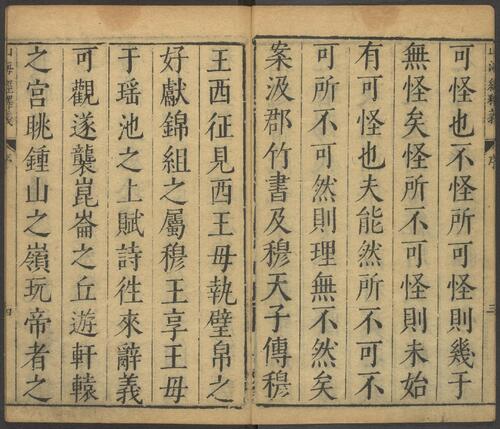 可怪也不怪所可怪則幾于
無怪矣怪所不可怪則未始
有可怪也夫能然所不可不
可所不可然則理無不然矣
案汲郡竹書及穆天子傳穆
王西征見西王母執璧帛之
好獻錦組之屬穆王享王母
于瑤池之上賦詩徃來辭義
可觀遂襲崑崙之丘遊軒轅
之宮眺鍾山之嶺玩帝者之
山海經釋義
序
四